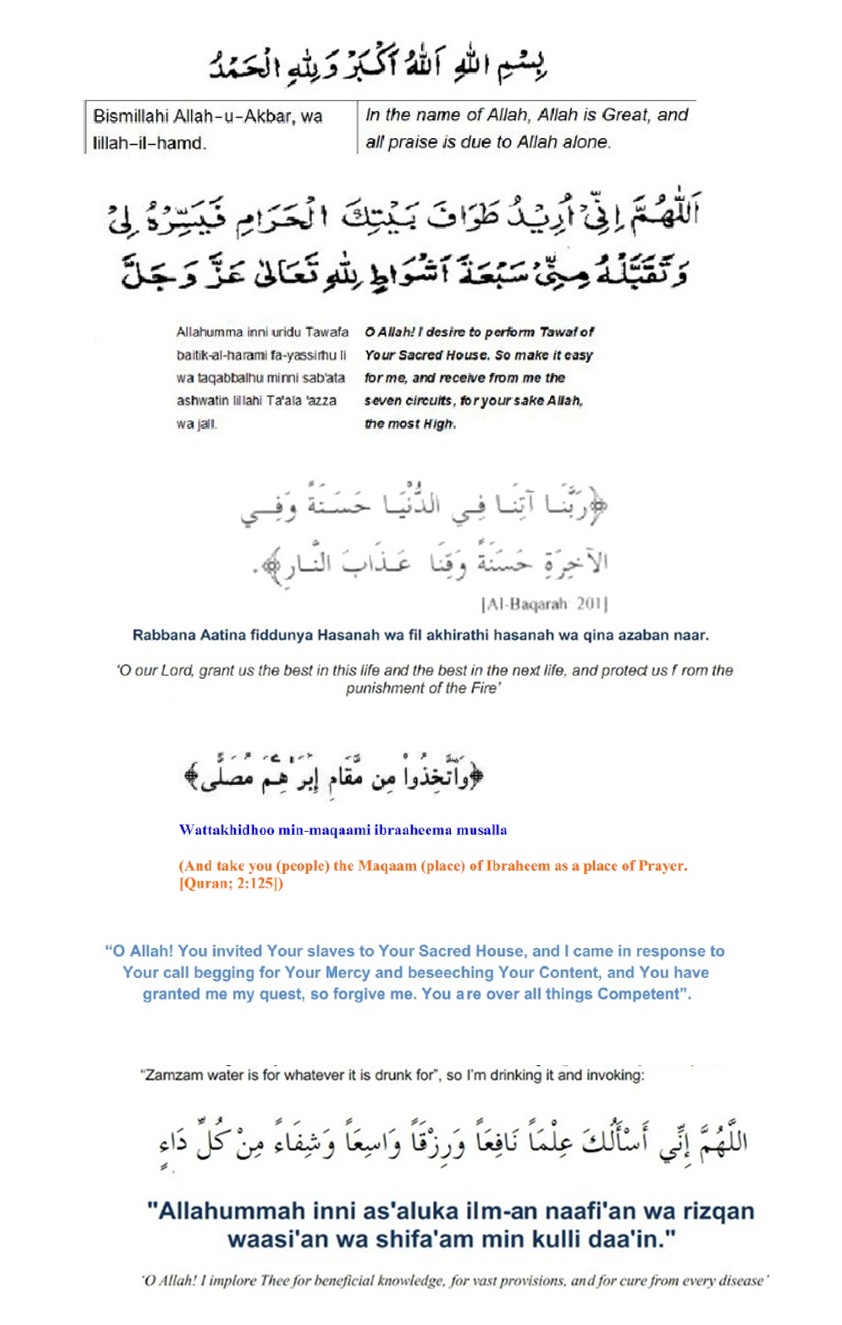 بِسْمِ اللهِ اَللهُ اَكْبَرْ وَلِلهِ الْحَمْدُ
Bismillahi Allah-u-Akbar, wa
lillah-il-hamd.
In the name of Allah, Allah is Great, and
all praise is due to Allah alone.
اَللّٰهُمَّ اِنِّيْ اُرِيْدُ طَوَافَ بَيْتِكَ الْحَرَامِ فَيَسِّرْهُ لِيْ
وَتَقَبَّلْهُ مِنِّيْ سَبْعَةَ اَشْوَاطٍ لِلهِ تَعَالٰى عَزَّ وَجَلَّ
Allahumma inni uridu Tawafa
baitik-al-harami fa-yassirhu li
wa taqabbalhu minni sab'ata
ashwatin lillahi Ta'ala 'azza
wa jall.
O Allah! I desire to perform Tawaf of
Your Sacred House. So make it easy
for me, and receive from me the
seven circuits, for your sake Allah,
the most High.
﴿رَبَّنَا آتِنَا فِي الدُّنْيَا حَسَنَةً وَفِي
الآخِرَةِ حَسَنَةً وَقِنَا عَذَابَ النَّارِ﴾.
[Al-Baqarah: 201]
Rabbana Aatina fiddunya Hasanah wa fil akhirathi hasanah wa qina azaban naar.
‘O our Lord, grant us the best in this life and the best in the next life, and protect us f rom the
punishment of the Fire’
﴿وَٱتَّخِذُواْ مِن مَّقَامِ إِبْرَٰهِۦمَ مُصَلًّى﴾
Wattakhidhoo min-maqaami ibraaheema musalla
(And take you (people) the Maqaam (place) of Ibraheem as a place of Prayer.
[Quran; 2:125])
“O Allah! You invited Your slaves to Your Sacred House, and I came in response to
Your call begging for Your Mercy and beseeching Your Content, and You have
granted me my quest, so forgive me. You are over all things Competent”.
“Zamzam water is for whatever it is drunk for”, so I’m drinking it and invoking:
اللَّهُمَّ إِنِّي أَسْأَلُكَ عِلْمَاً نَافِعَاً وَرِزْقَاً وَاسِعَاً وَشِفَاءً مِنْ كُلِّ دَاءٍ
"Allahummah inni as'aluka ilm-an naafi'an wa rizqan
waasi'an wa shifa'am min kulli daa'in."
‘O Allah! I implore Thee for beneficial knowledge, for vast provisions, and for cure from every disease’